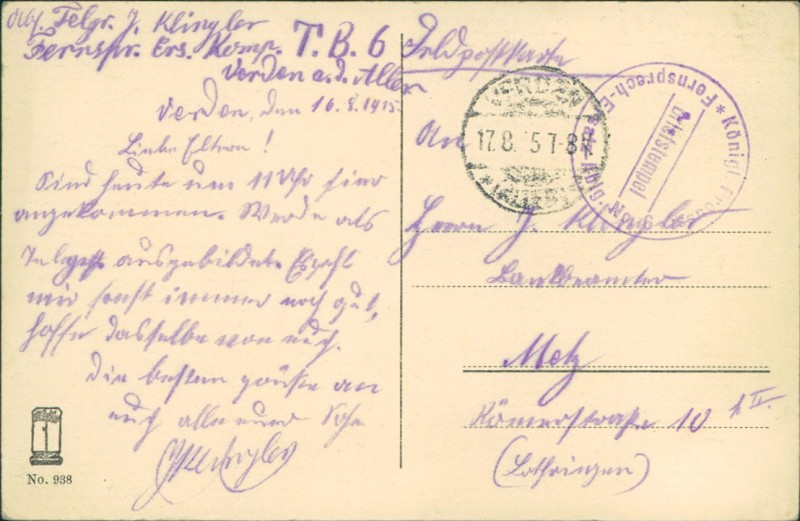 Abs. Telgr. J. Klingler
Fernspr. Ers. Komp. T. B. 6
Verden a. d. Aller
Verden, den 16.8.1915
Liebe Eltern!
Sind heute um 11 Uhr hier
angekommen. Werde als
ausgebildet. Es geht
mir sonst immer noch gut,
hoffe dasselbe von euch.
Die besten Grüße an
euch alle euer Sohn
J. Klingler
No. 938
Feldpostkarte
VERDEN
17.8.15 7-8
(ALLER)
*Königl. Preuss.
Fernsprech-E
Briefstempel
No 6
An
Herrn J. Klingler
Bankbeamter
Metz
Römerstraße 10 II.
(Lothringen)